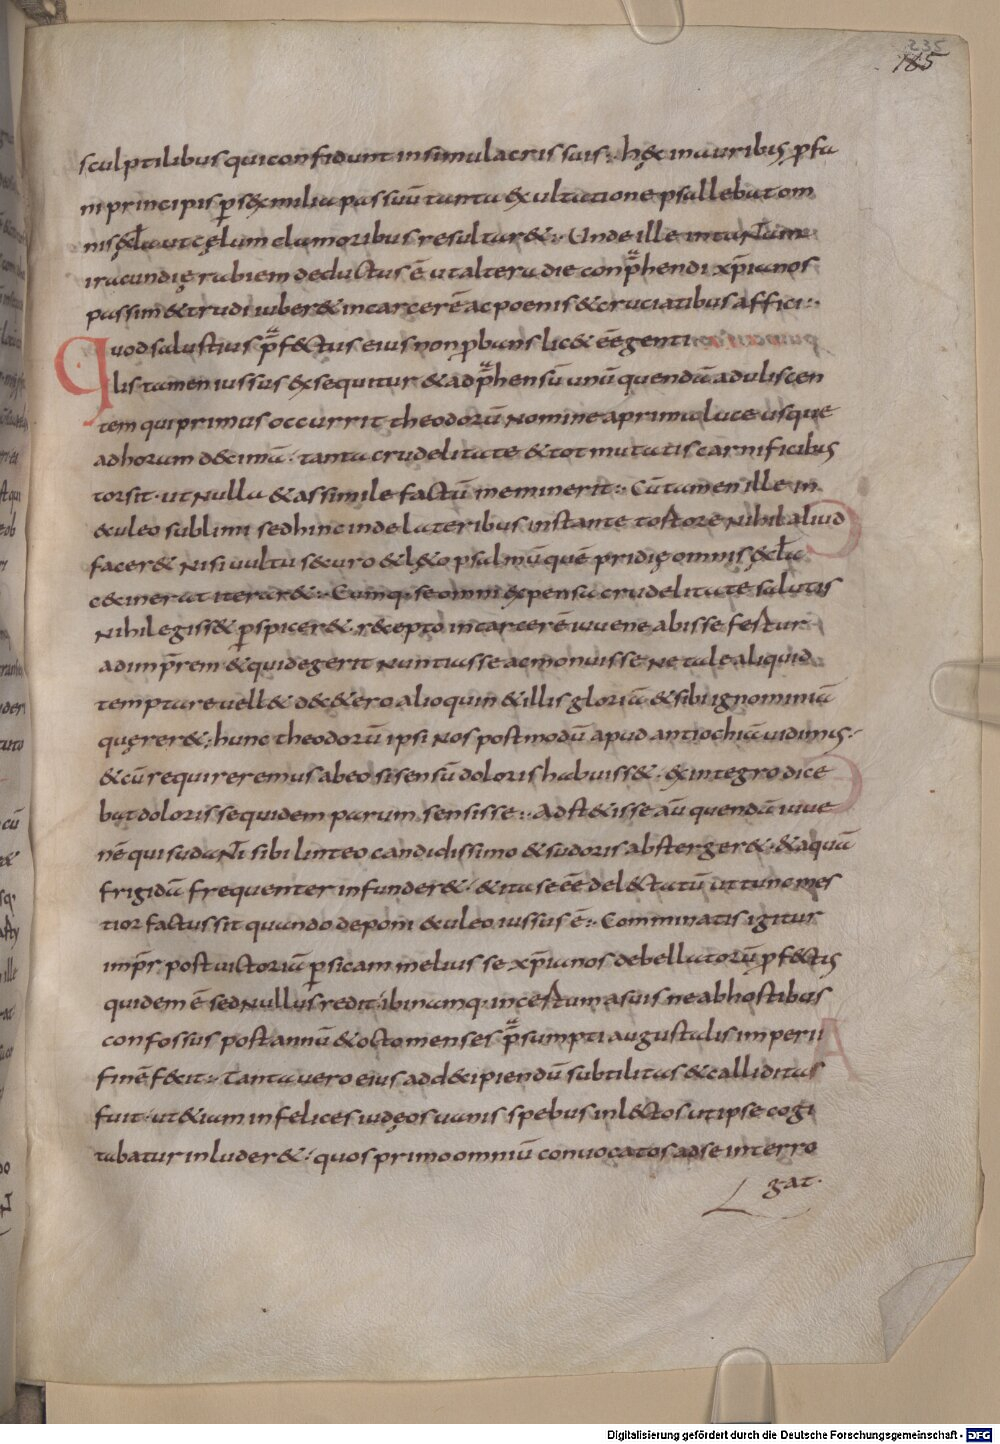 235
185
sculptilibus qui confidunt in simulacris suis. h&ecedil; in auribus ꝓfa
ni principis ꝑ sex milia passuū tanta exultatione psallebat om
nis eccl̄a ut cęlum clamoribus resultar&. Unde ille in tantam
iracundię rabiem deductus ē ut altera die conp̄hendi xp̄ianos
passim & trudi iuber& in carcerē ac poenis & cruciatibus affici.
Quod salustius p̄fectus eius non ꝓbans lic& eēt genti
lis tamen iussus exsequitur & adp̄hensū unū quendā aduliscen
tem qui primus occurrit theodorū nomine a prima luce usque
ad horam decimā. tanta crudelitate & tot mutatis carnificibus
torsit. ut nulla &as simile factū meminerit. Cū tamen ille in
&uleo sublimi sed hinc inde lateribus instante tostore nihil aliud
facer& nisi uultu securo & lęto psalmū quē pridię omnis eccl̄a
cecinerat iterar&. Cumq; se omni expensa crudelitate salutis
nihil egiss& ꝑspicer& recepto in carcerē iuuene abisse fertur
ad imp̄rem & quid egerit nuntiasse ac monuisse ne tale aliquid
temptare uell& de c&ero alioquin & illis gloriā & sibi ignominiā
quęrer&; hunc theodorū ipsi nos postmodū apud antiochiā uidimus.
& cū requireremus ab eo si sensū doloris habuiss& ex integro dice
bat doloris se quidem parum sensisse. Adst&isse aū quendā iuue
nē qui sudanti sibi linteo candidissimo & sudoris absterger& & aquā
frigidā frequenter infunder& & ita se eē delectatū ut tunc mes
tior factus sit quando deponi &uleo iussus ē. Comminatis igitur
imp̄r post uictoriā ꝑsicam melius se xp̄ianos debellatorū ꝓfectus
quidem ē sed nullus redit. ibi namq; incestum a suis ne ab hostibus
confossus post annū & octo menses p̄sumpti augustalis imperii
finē fecit. Tanta uero eius ad decipiendū subtilitas & calliditas
fuit. ut &iam infelices iudęos uanis spebus inlectos ut ipse cogi
tabatur inluder&. quos primo omniū conuocatos ad se interro
gat.
Digitalisierung gefördert durch die Deutsche Forschungsgemeinschaft - DFG